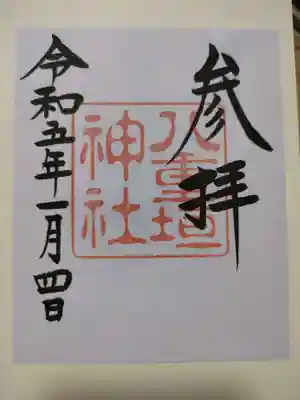 参拝
八重垣
神社
令和五年一月四日